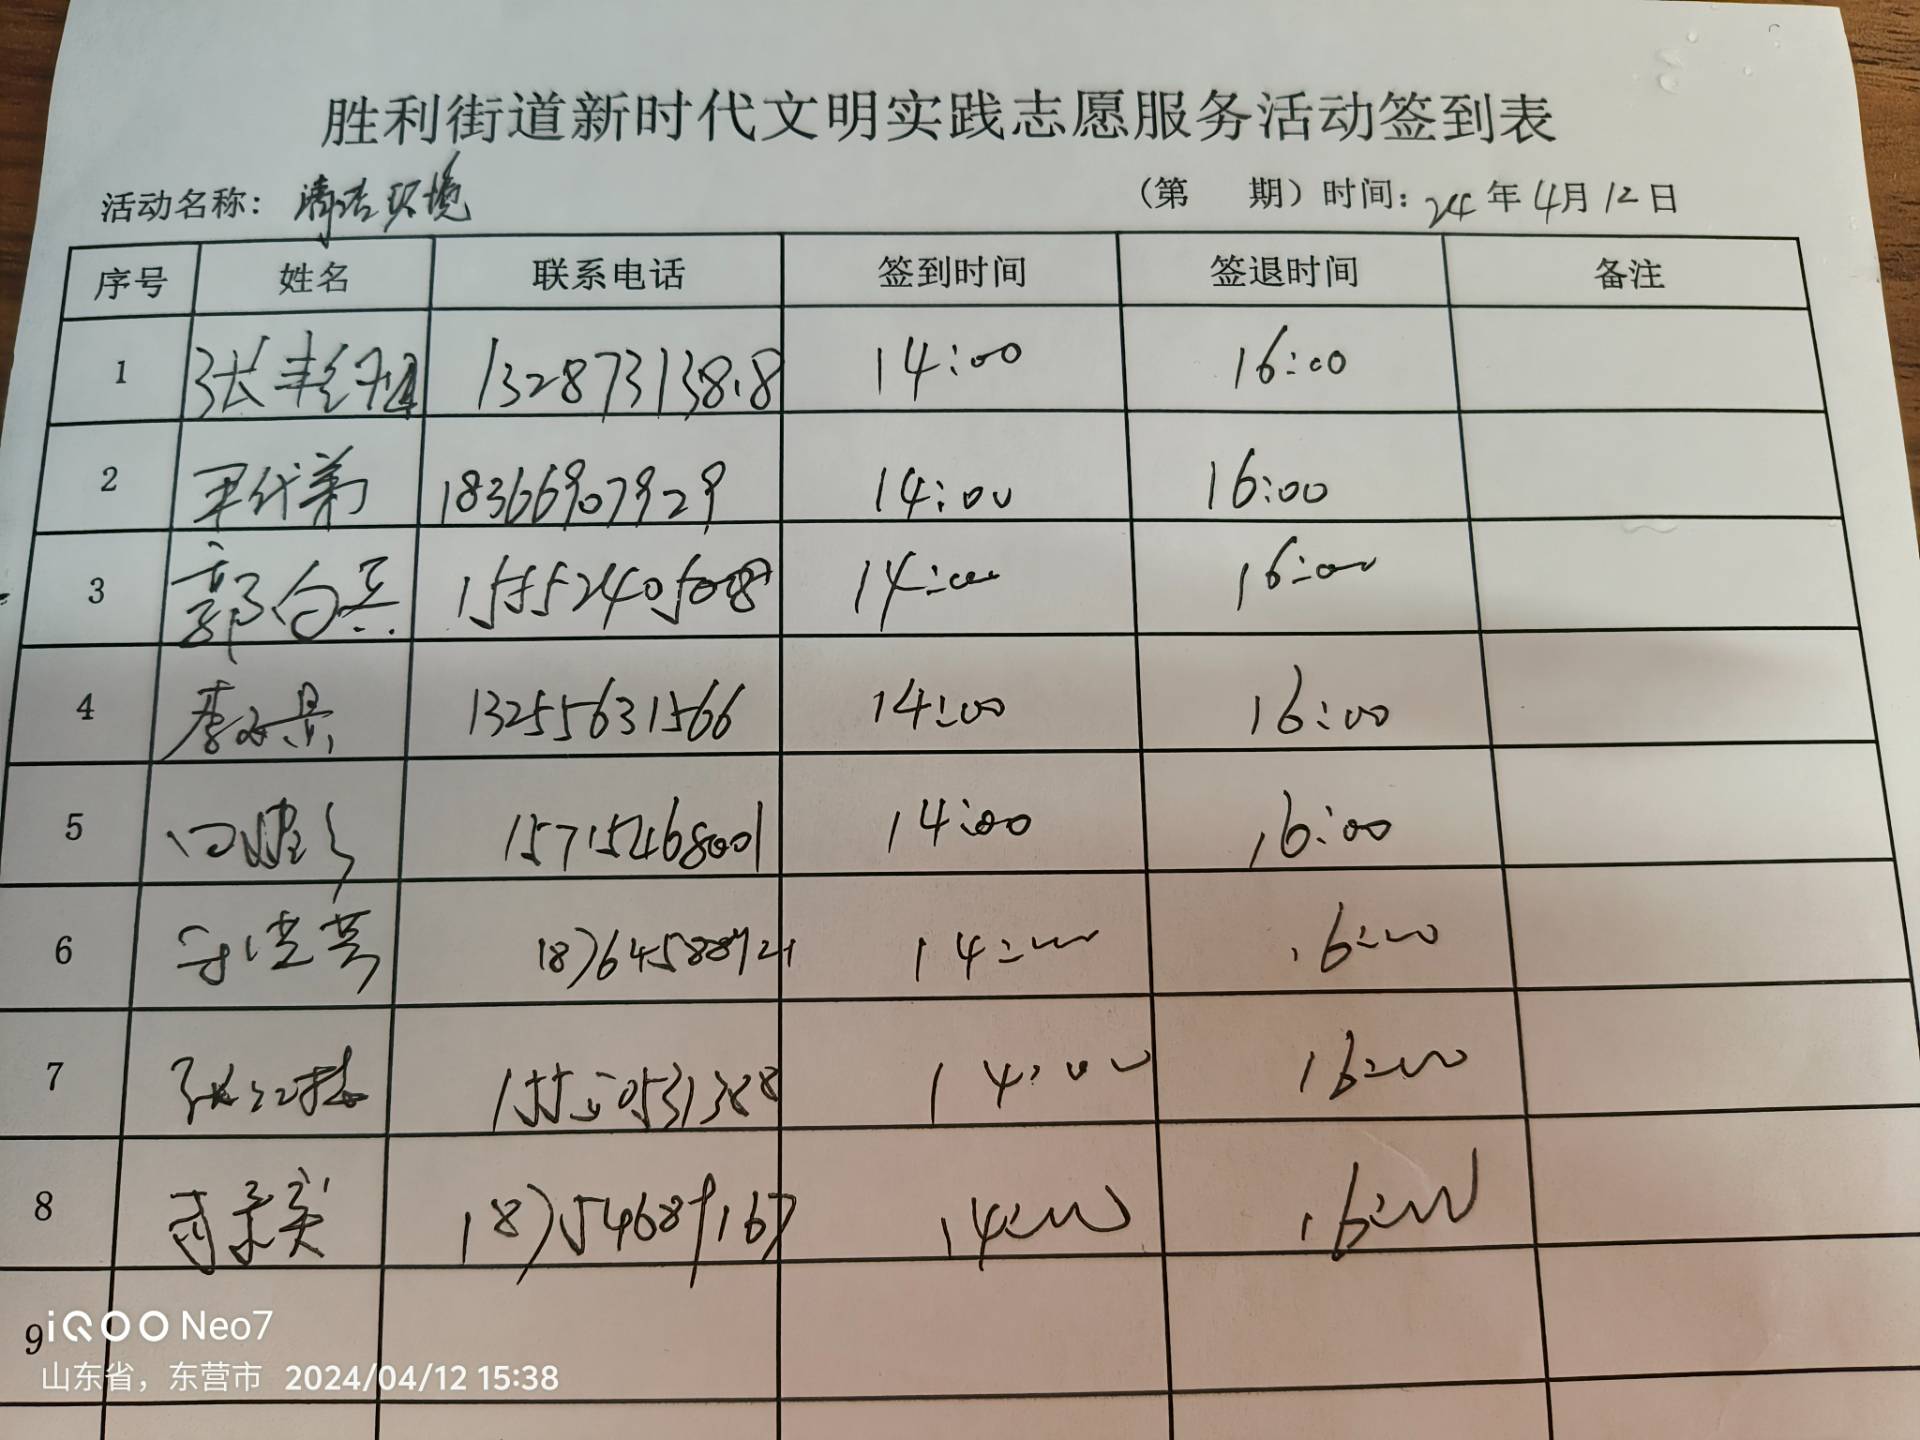 胜利街道新时代文明实践志愿服务活动签到表
活动名称：清洁环境 （第 期）时间：24年4月12日
序号 姓名 联系电话 签到时间 签退时间 备注
1 张 14:00 16:00
2 18366907929 14:00 16:00
3 郭向兵 15552405008 14:00 16:00
4 13255631566 14:00 16:00
5 15715468001 14:00 16:00
6 14:00 16:00
7 14:00 16:00
8 18754689167 14:00 16:00
9
iQOO Neo7
山东省，东营市 2024/04/12 15:38